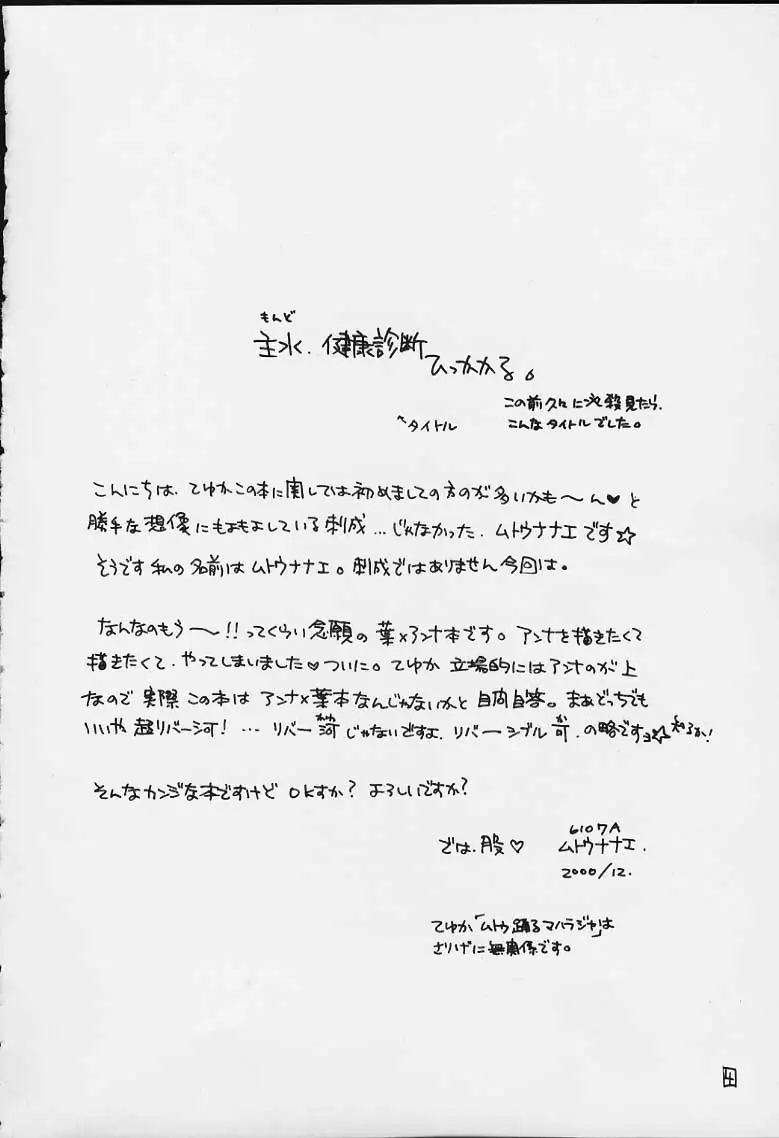 もんど
主水、健康診断
ひっかかる。
この前久々に必殺見たら、
こんなタイトルでした。
^タイトル
こんにちは、てゆかこの本に関しては初めましての方のが多いかも〜ん♥と
勝手な想像にもよもよしている刺成…じゃなかった、ムトウナナエです☆
そうです私の名前はムトウナナエ。刺成ではありません今回は。
なんなのもう〜!!ってくらい念願の葉×アンナ本です。アンナを描きたくて
描きたくて、やってしまいました♥ついに。てゆか立場的にはアンナのが上
なので実際この本はアンナ×葉本なんじゃないかと自問自答。まぁどっちでも
いいや超リバー河!…リバー河じゃないですよ、リバーシブル可、の略ですヨ☆知るか!
かわ
か
そんなカンジな本ですけどOKすか?よろしいですか?
では、股♡
6107A
ムトウナナエ.
2000/12.
てゆか「ムトウ踊るマハラジャ」は
さりげに無関係です。
4